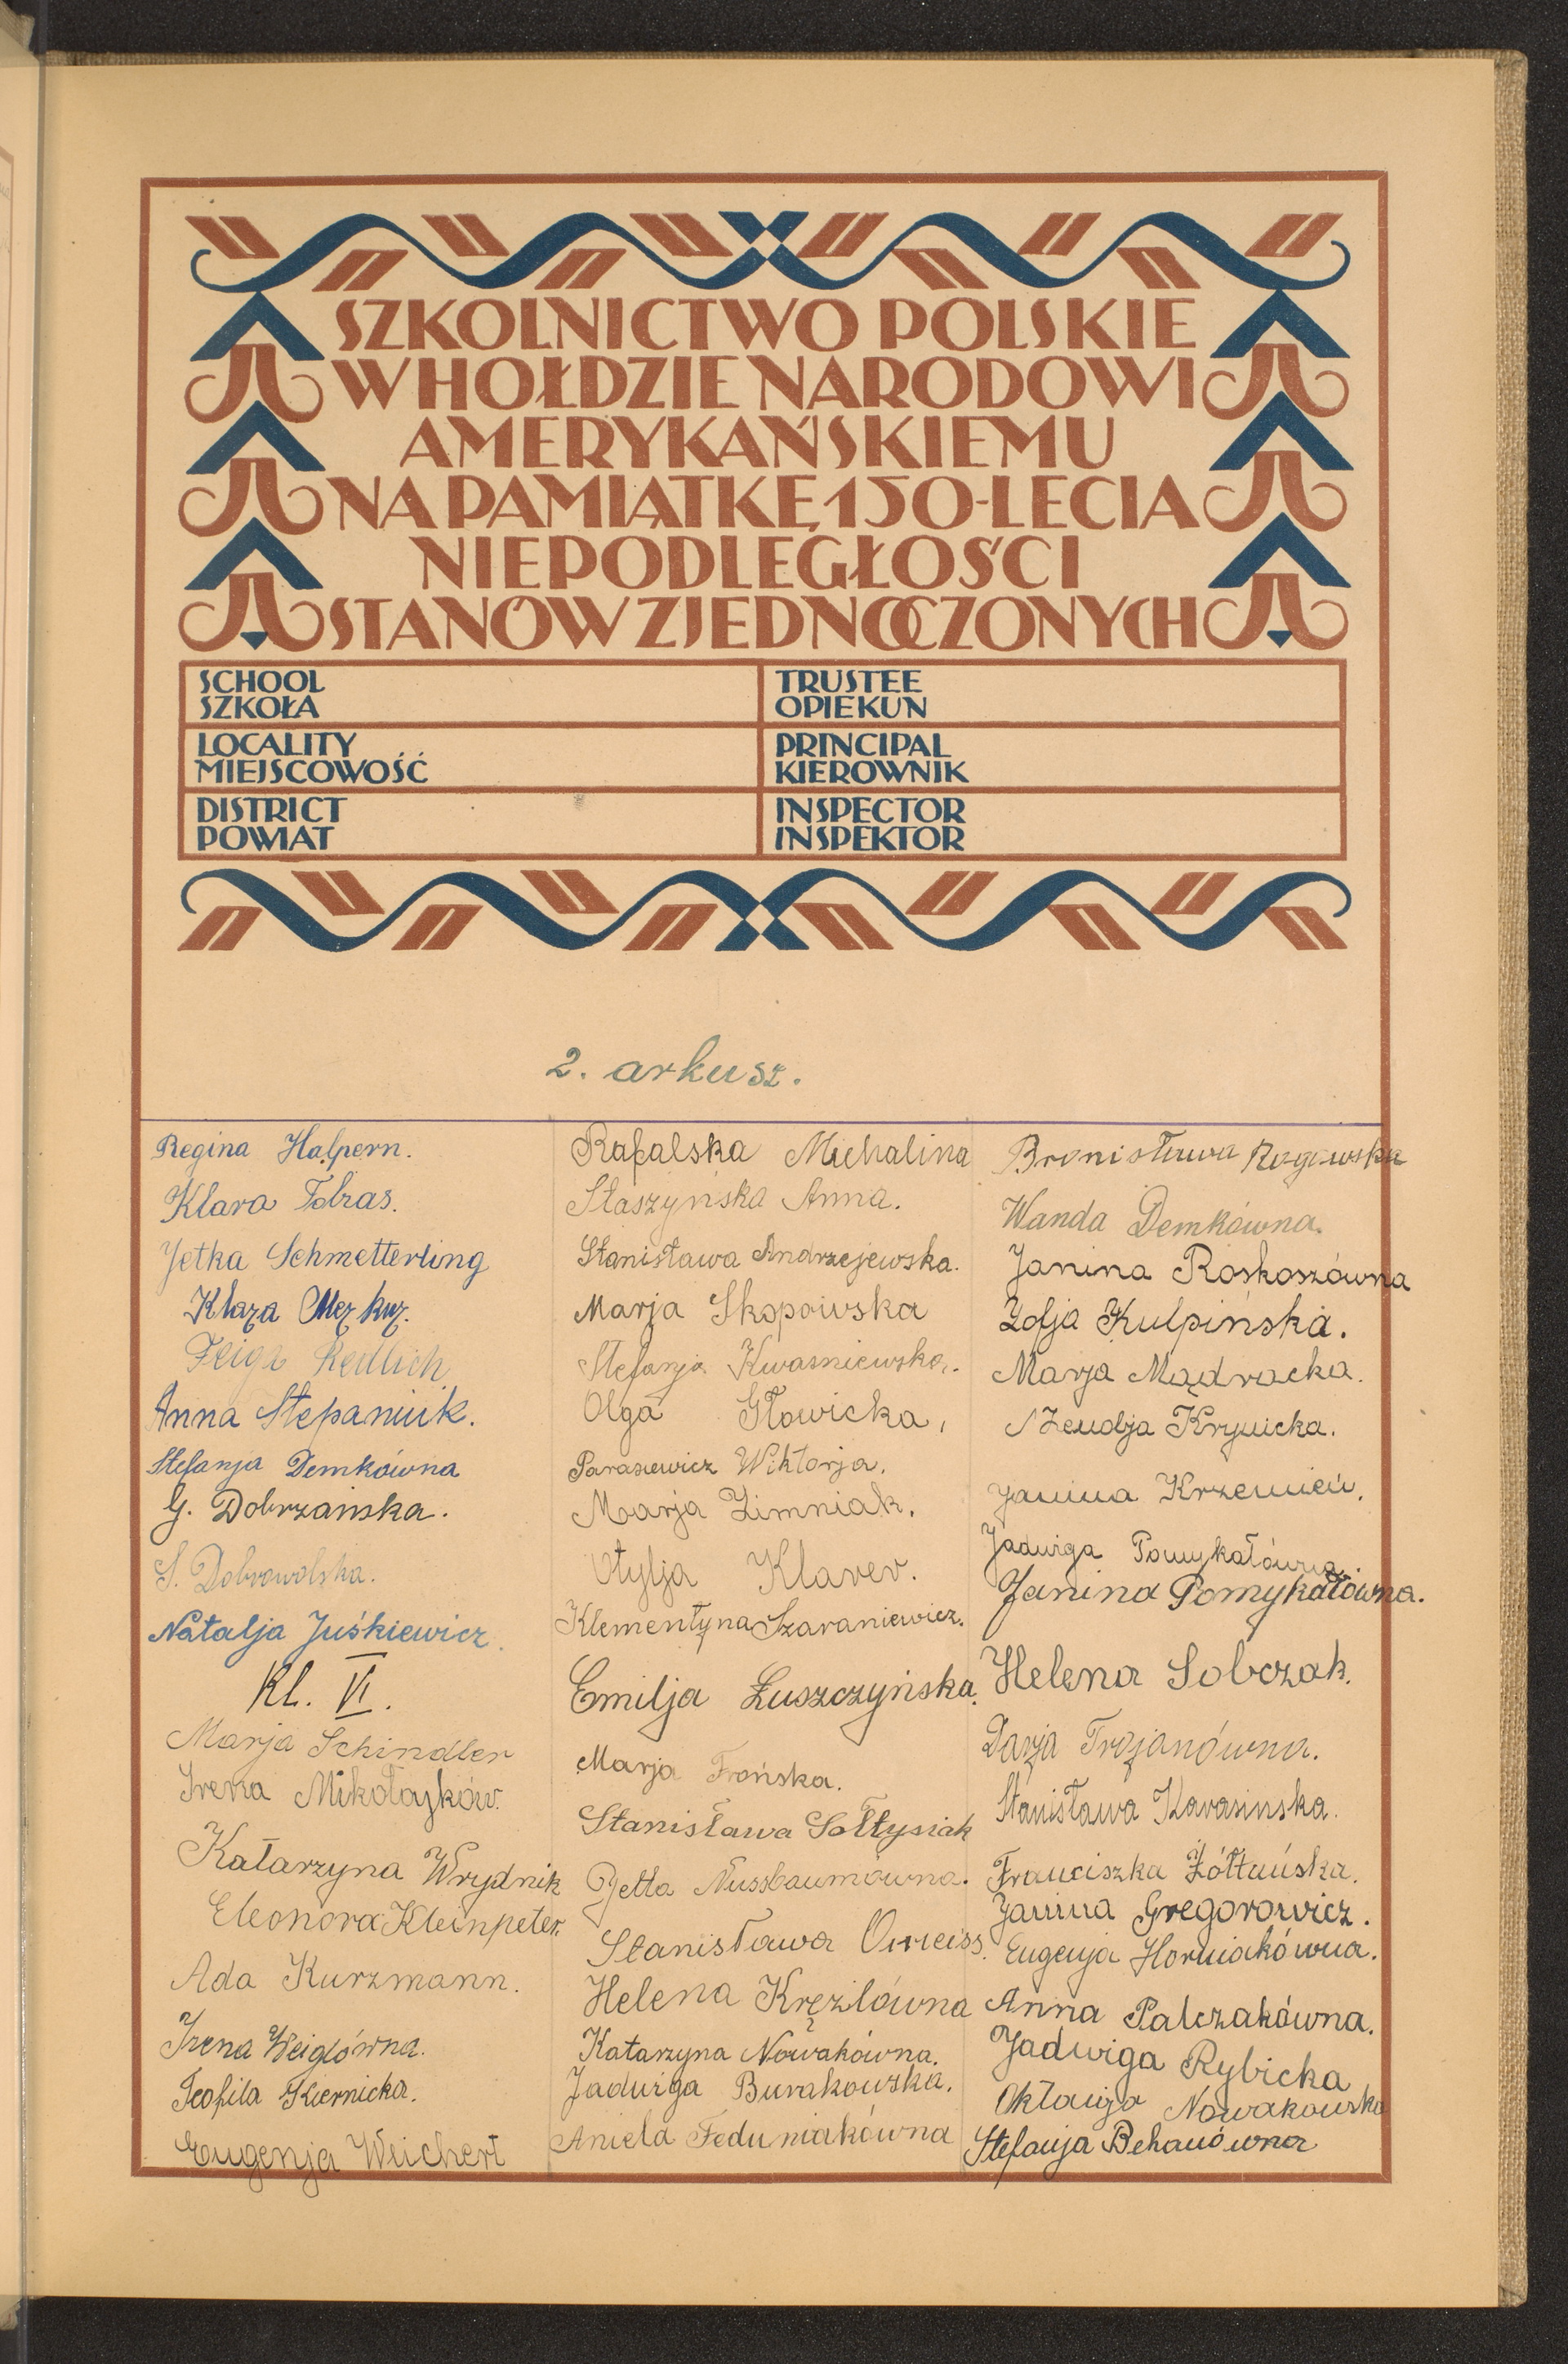 SZKOLNICTWO POLSKIE
W HOŁDZIE NARODOWI
AMERYKAŃSKIEMU
NA PAMIĄTKĘ 150-LECIA
NIEPODLEGŁOŚCI
STANÓW ZJEDNOCZONYCH
SCHOOL
SZKOŁA
TRUSTEE
OPIEKUN
LOCALITY
MIEJSCOWOŚĆ
PRINCIPAL
KIEROWNIK
DISTRICT
POWIAT
INSPECTOR
INSPEKTOR
2. arkusz.
Regina Halpern.
Klara Tobias.
Jetka Schmetterling
Klara Merkur.
Feiga Redlich
Anna Stepaniuk.
Stefanja Demkówna
G. Dobrzańska.
S. Dobrowolska.
Natalja Juśkiewicz.
Kl. VI.
Marja Schindler
Irena Mikołajków.
Katarzyna Wrydnik
Eleonora Kleinpeter.
Ada Kurzmann.
Irena Weiglówna.
Teofila Kiernicka.
Eugenja Weichert
Rafalska Michalina
Staszyńska Anna.
Stanisława Andrzejewska.
Marja Skopowska
Stefanja Kwasniewska.
Olga Głowicka,
Parasiewicz Wiktorja.
Marja Zimniak.
Otylja Klarer.
Klementyna Szaraniewicz.
Emilja Łuszczyńska.
Marja Frońska.
Stanisława Sołtysiak
Jetta Nussbaumówna.
Stanisława
Helena Krężlówna
Katarzyna Nowakówna.
Jadwiga Burakowska.
Aniela Feduniakówna
Bronisława Rogowska
Wanda Demkówna.
Janina Roskoszówna
Zofja Kulpińska.
Marja Mądracka.
Krynicka.
Janina Krzemień.
Jadwiga Pomykałówna
Janina Pomykałówna.
Helena Sobczak.
Darja Trojanówna.
Stanisława Karasinska.
Franciszka Żółtańska.
Janina Gregorowicz.
Eugenja Horniakówna.
Anna Palczakówna.
Jadwiga Rybicka
Oktawja Nowakowska
Stefanja Behanówna